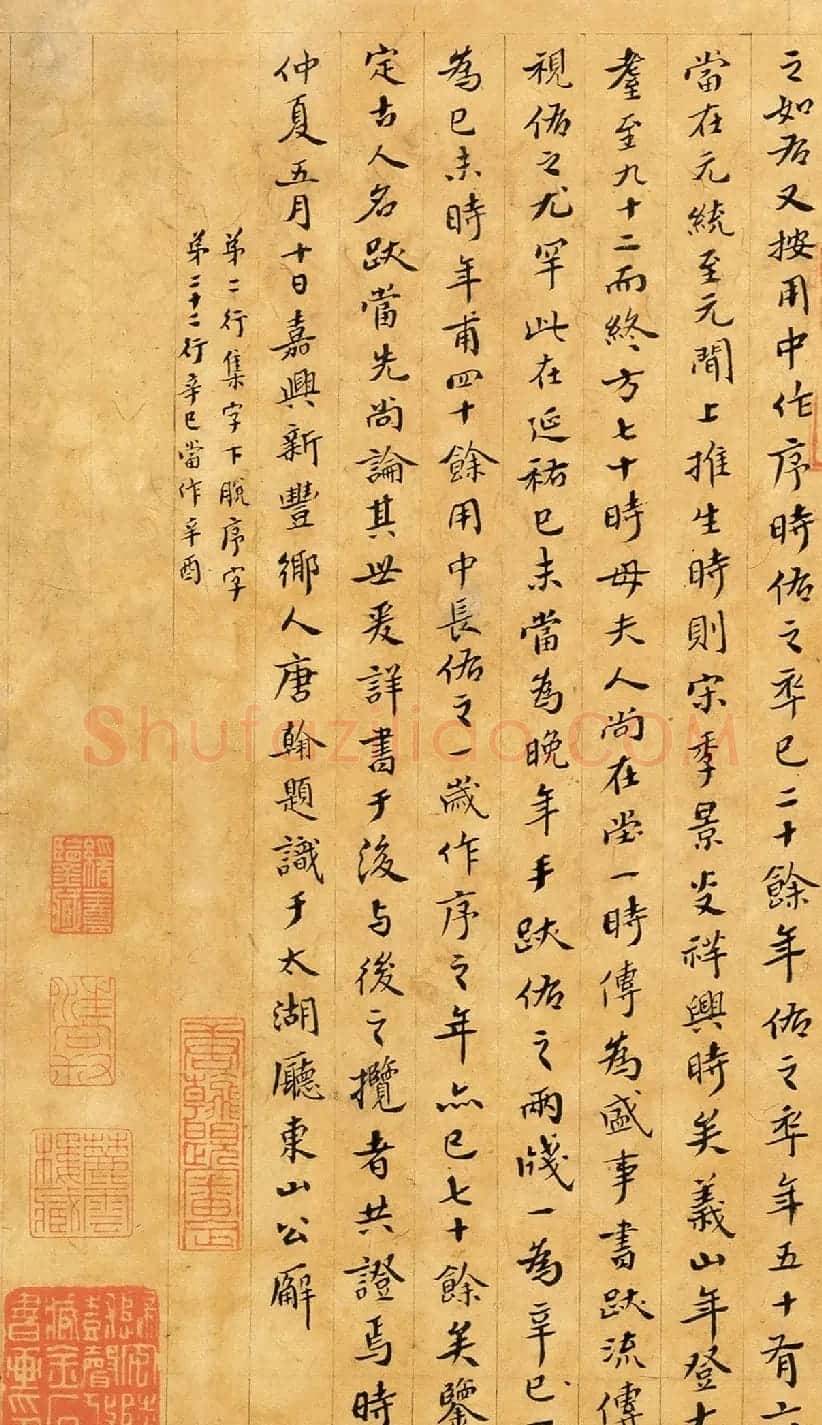 之如右又按用中作序時佑之卒已二十餘年佑之卒年五十有六
當在元統至元間上推生時則宋季景炎祥興時矣義山年登大
耋至九十二而終方七十時母夫人尚在堂一時傳為盛事書跋流傳
視佑之尤罕此在延祐己未當為晚年手跋佑之兩牋一為辛巳一
為己未時年甫四十餘用中長佑之一歲作序之年亦已七十餘矣鑒
定古人名跋當先尚論其世爰詳書于後与後之攬者共證焉時
仲夏五月十日嘉興新豐鄉人唐翰題識于太湖廳東山公廨
弟二行集字下脫序字
弟二十二行辛巳當作辛酉
唐翰題審定
Shufaziliao.COM